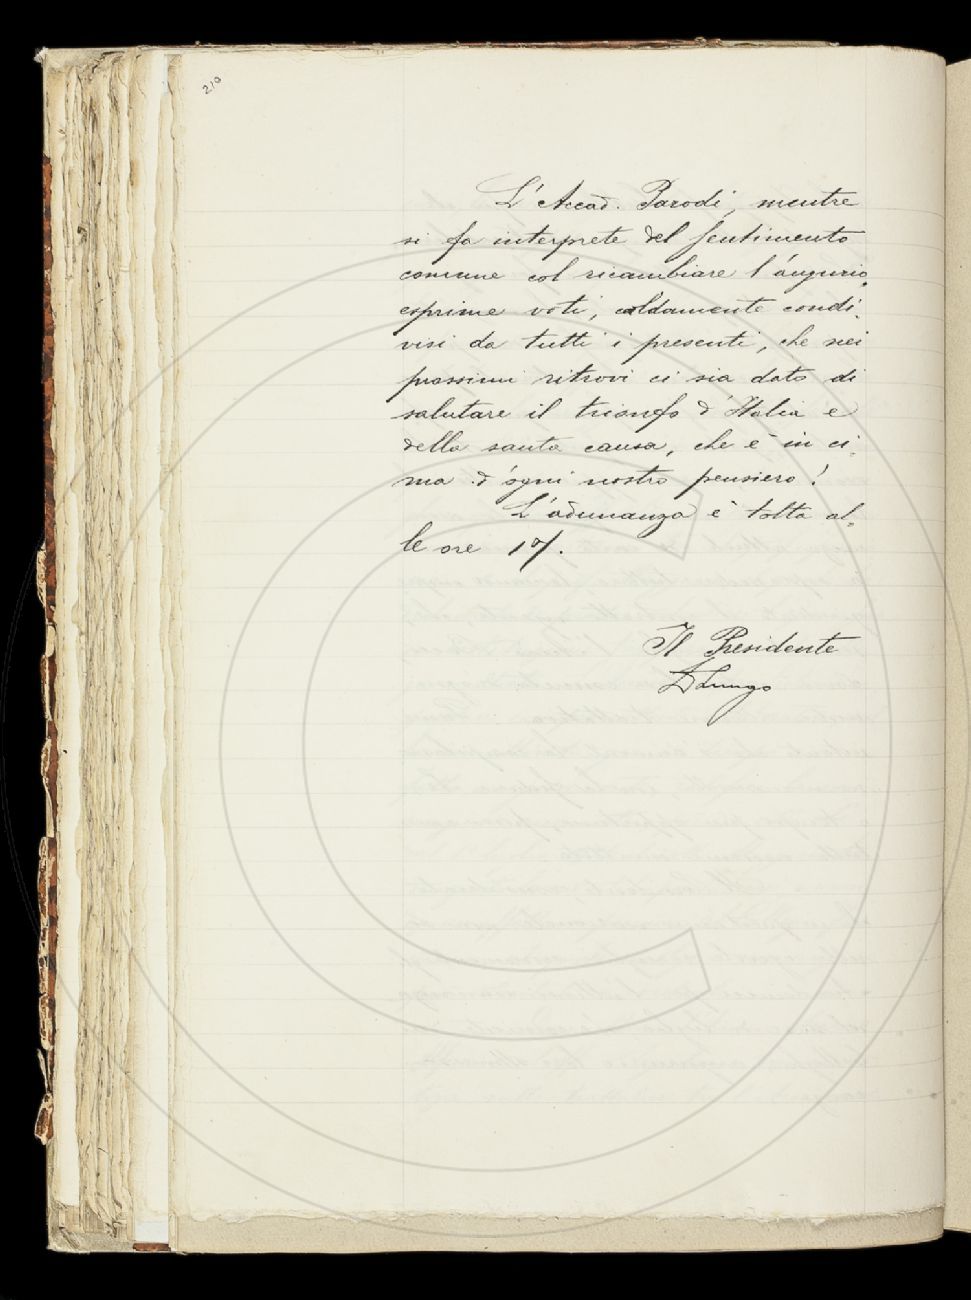 210
L'Accad. Parodi, mentre
si fa interprete del sentimento
comune col ricambiare l'augurio,
esprime voti, caldamente condi-
visi da tutti i presenti, che nei
prossimi ritrovi ci sia dato di
salutare il trionfo d'Italia e
della santa causa, che è in ci-
ma d'ogni nostro pensiero!
L'adunanza è tolta al-
le ore 17.
Il Presidente
DLungo